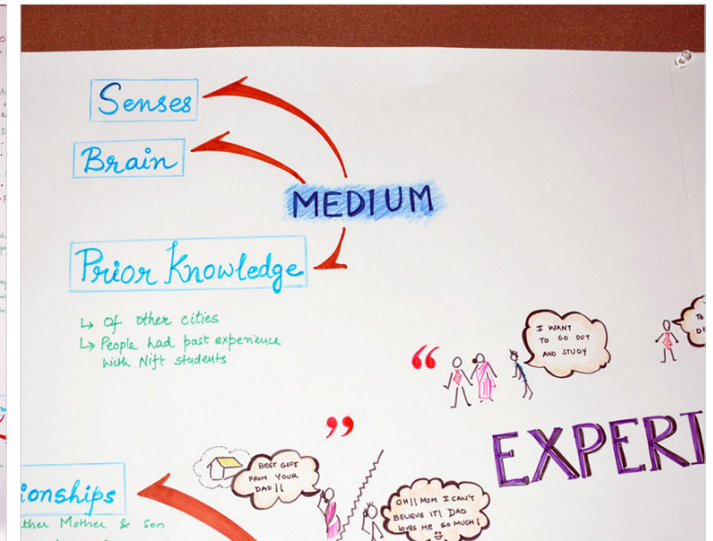 Senses
Brain
MEDIUM
Prior Knowledge
↳ Of other cities
↳ People had past experience
with Nift students
I WANT
TO GO OUT
AND STUDY
TO
EXPERI
BEST GIFT
FROM YOUR
DAD !!
OH!! MOM I CAN'T
BELIEVE IT! DAD
LOVES ME SO MUCH!
ionships
ther Mother & Son